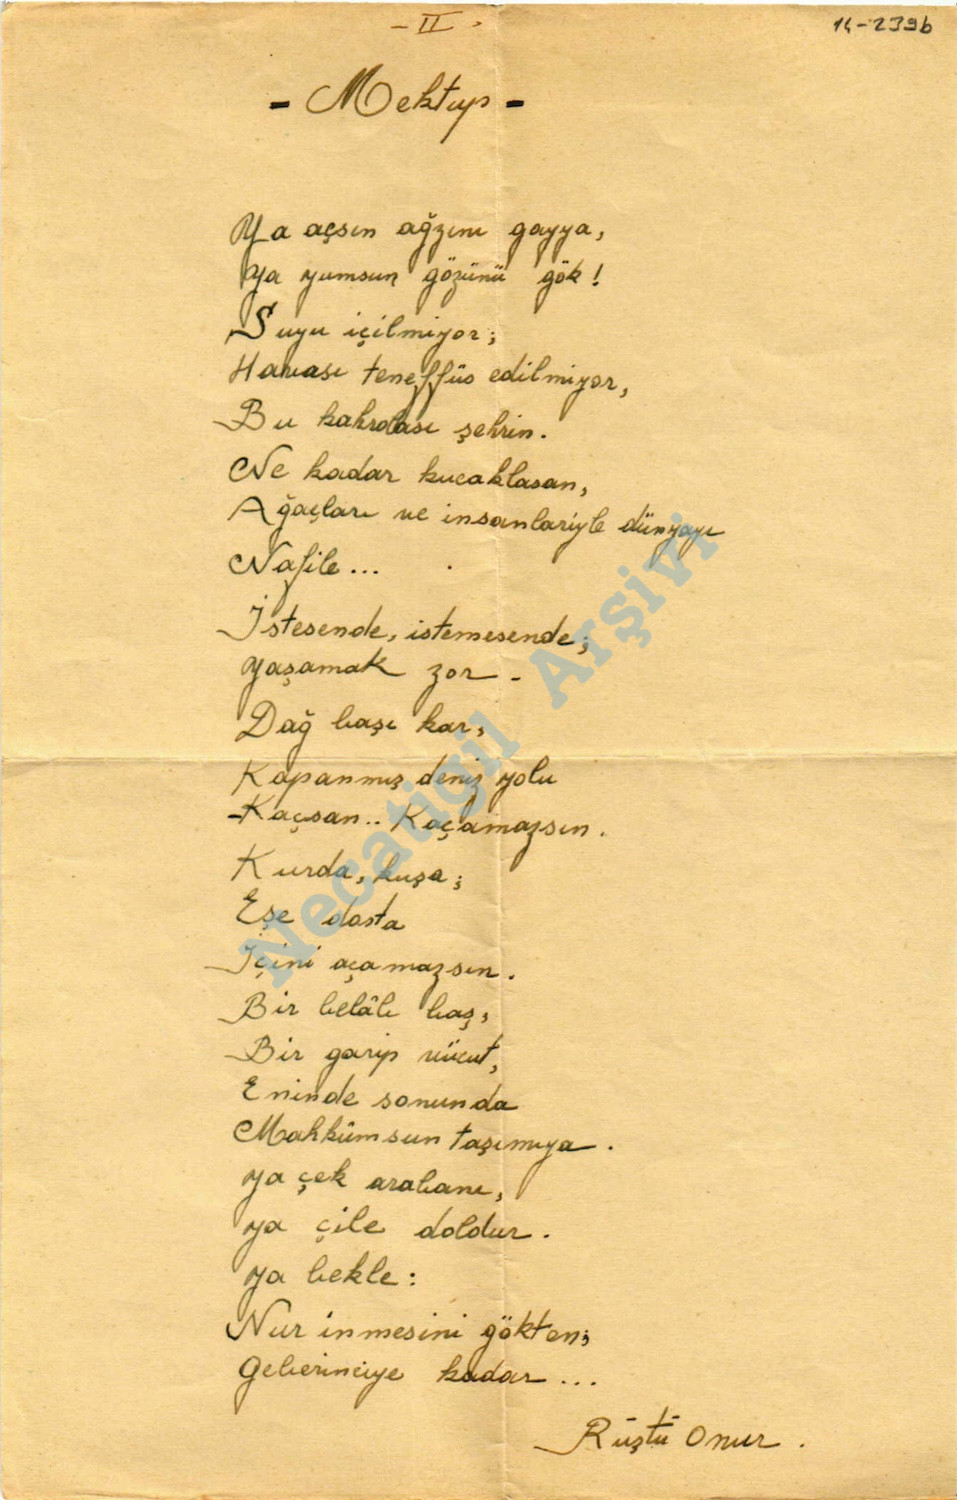 - II -
14-239b
- Mektup -
Ya açsın ağzını gayya,
Ya yumsun gözünü gök!
Suyu içilmiyor;
Havası teneffüs edilmiyor,
Bu kahrolası şehrin.
Ne kadar kucaklasan,
Ağaçları ve insanlariyle dünyayı
Nafile...
İstesende, istemesende;
Yaşamak zor.
Dağ başı kar,
Kapanmış deniz yolu
Kaçsan.. Kaçamazsın.
Kurda, kuşa;
Eşe dosta
İçini açamazsın.
Bir belâlı baş,
Bir garip vücut,
Eninde sonunda
Mahkûmsun taşımıya.
Ya çek arabanı,
Ya çile doldur.
Ya bekle:
Nur inmesini gökten;
Geberinciye kadar...
Rüştü Onur.
Necatigil Arşivi